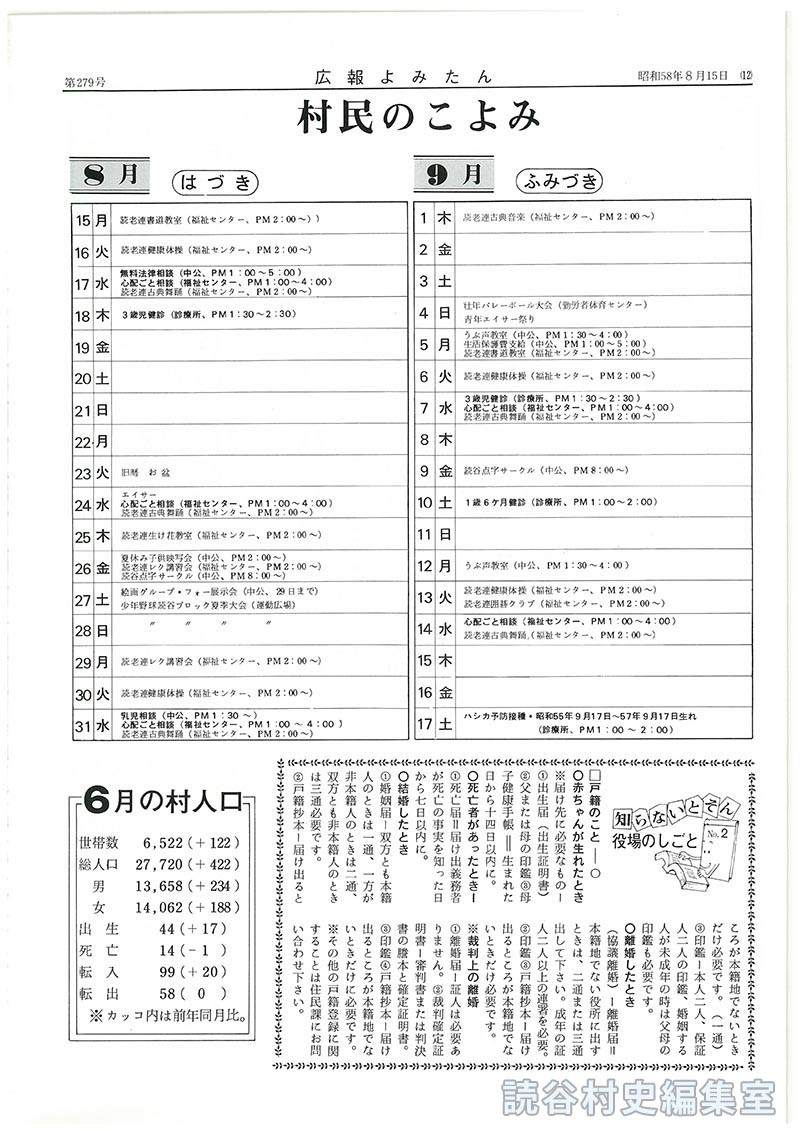 第279号
広報よみたん
昭和58年8月15日 (12)
村民のこよみ
8月 はづき
15 月 読老連書道教室（福祉センター、PM2：00～））
16 火 読老連健康体操（福祉センター、PM2：00～）
17 水 無料法律相談（中公、PM1：00～5：00）
心配ごと相談（福祉センター、PM1：00～4：00）
読老連古典舞踊（福祉センター、PM2：00～）
18 木 3歳児健診（診療所、PM1：30～2：30）
19 金
20 土
21 日
22 月
23 火 旧暦 お盆
24 水 エイサー
心配ごと相談（福祉センター、PM1：00～4：00）
読老連古典舞踊（福祉センター、PM2：00～）
25 木 読老連生け花教室（福祉センター、PM2：00～）
26 金 夏休み子供映写会（中公、PM2：00～）
読老連レク講習会（福祉センター、PM2：00～）
読谷点字サークル（中公、PM8：00～）
27 土 絵画グループ・フォー展示会（中公、29日まで）
少年野球読谷ブロック夏季大会（運動広場）
28 日 〃 〃 〃 〃
29 月 読老連レク講習会（福祉センター、PM2：00～）
30 火 読老連健康体操（福祉センター、PM2：00～）
31 水 乳児相談（中公、PM1：30～）
心配ごと相談（福祉センター、PM1：00～4：00）
読老連古典舞踊（福祉センター、PM2：00～）
9月 ふみづき
1 木 読老連古典音楽（福祉センター、PM2：00～）
2 金
3 土
4 日 壮年バレーボール大会（勤労者体育センター）
青年エイサー祭り
5 月 うぶ声教室（中公、PM1：30～4：00）
生活保護費支給（中公、PM1：00～5：00）
読老連書道教室（福祉センター、PM2：00～）
6 火 読老連健康体操（福祉センター、PM2：00～）
7 水 3歳児健診（診療所、PM1：30～2：30）
心配ごと相談（福祉センター、PM1：00～4：00）
読老連古典舞踊（福祉センター、PM2：00～）
8 木
9 金 読谷点字サークル（中公、PM8：00～）
10 土 1歳6ケ月健診（診療所、PM1：00～2：00）
11 日
12 月 うぶ声教室（中公、PM1：30～4：00）
13 火 読老連健康体操（福祉センター、PM2：00～）
読老連囲碁クラブ（福祉センター、PM2：00～）
14 水 心配ごと相談（福祉センター、PM1：00～4：00）
読老連古典舞踊，（福祉センター、PM2：00～）
15 木
16 金
17 土 ハシカ予防接種・昭和55年9月17日～57年9月17日生れ
（診療所、PM1：00～2：00）
6月の村人口
世帯数 6,522（＋122）
総人口 27,720（＋422）
男 13,658（＋234）
女 14,062（＋188）
出生 44（＋17）
死亡 14（－1）
転入 99（＋20）
転出 58（0）
※カッコ内は前年同月比。
知らないとそん
役場のしごと
No.2
□戸籍のこと―○
○赤ちゃんが生れたとき
※届け先に必要なもの―
①出生届（出生証明書）
②父または母の印鑑③母
子健康手帳＝生まれた
日から十四日以内に。
○死亡者があったとき―
①死亡届＝届け出義務者
が死亡の事実を知った日
から七日以内に。
○結婚したとき
①婚姻届―双方とも本籍
人のときは一通、一方が
非本籍人のときは二通、
双方とも非本籍人のとき
は三通必要です。
②戸籍抄本―届け出ると
ころが本籍地でないとき
だけ必要です。（一通）
③印鑑―本人二人、保証
人二人の印鑑、婚姻する
人が未成年の時は父母の
印鑑も必要です。
○離婚したとき
（協議離婚）―離婚届＝
本籍地でない役所に出す
ときは、二通または三通
出して下さい。成年の証
人二人以上の連署を必要。
②印鑑③戸籍抄本―届け
出るところが本籍地でな
いときだけ必要です。
※裁判上の離婚
①離婚届―証人は必要あ
りません。②裁判確定証
明書―審判書または判決
書の謄本と確定証明書。
③印鑑④戸籍抄本―届け
出るところが本籍地でな
いときだけに必要です。
※その他の戸籍登録に関
することは住民課にお問
い合わせ下さい。
読谷村史編集室